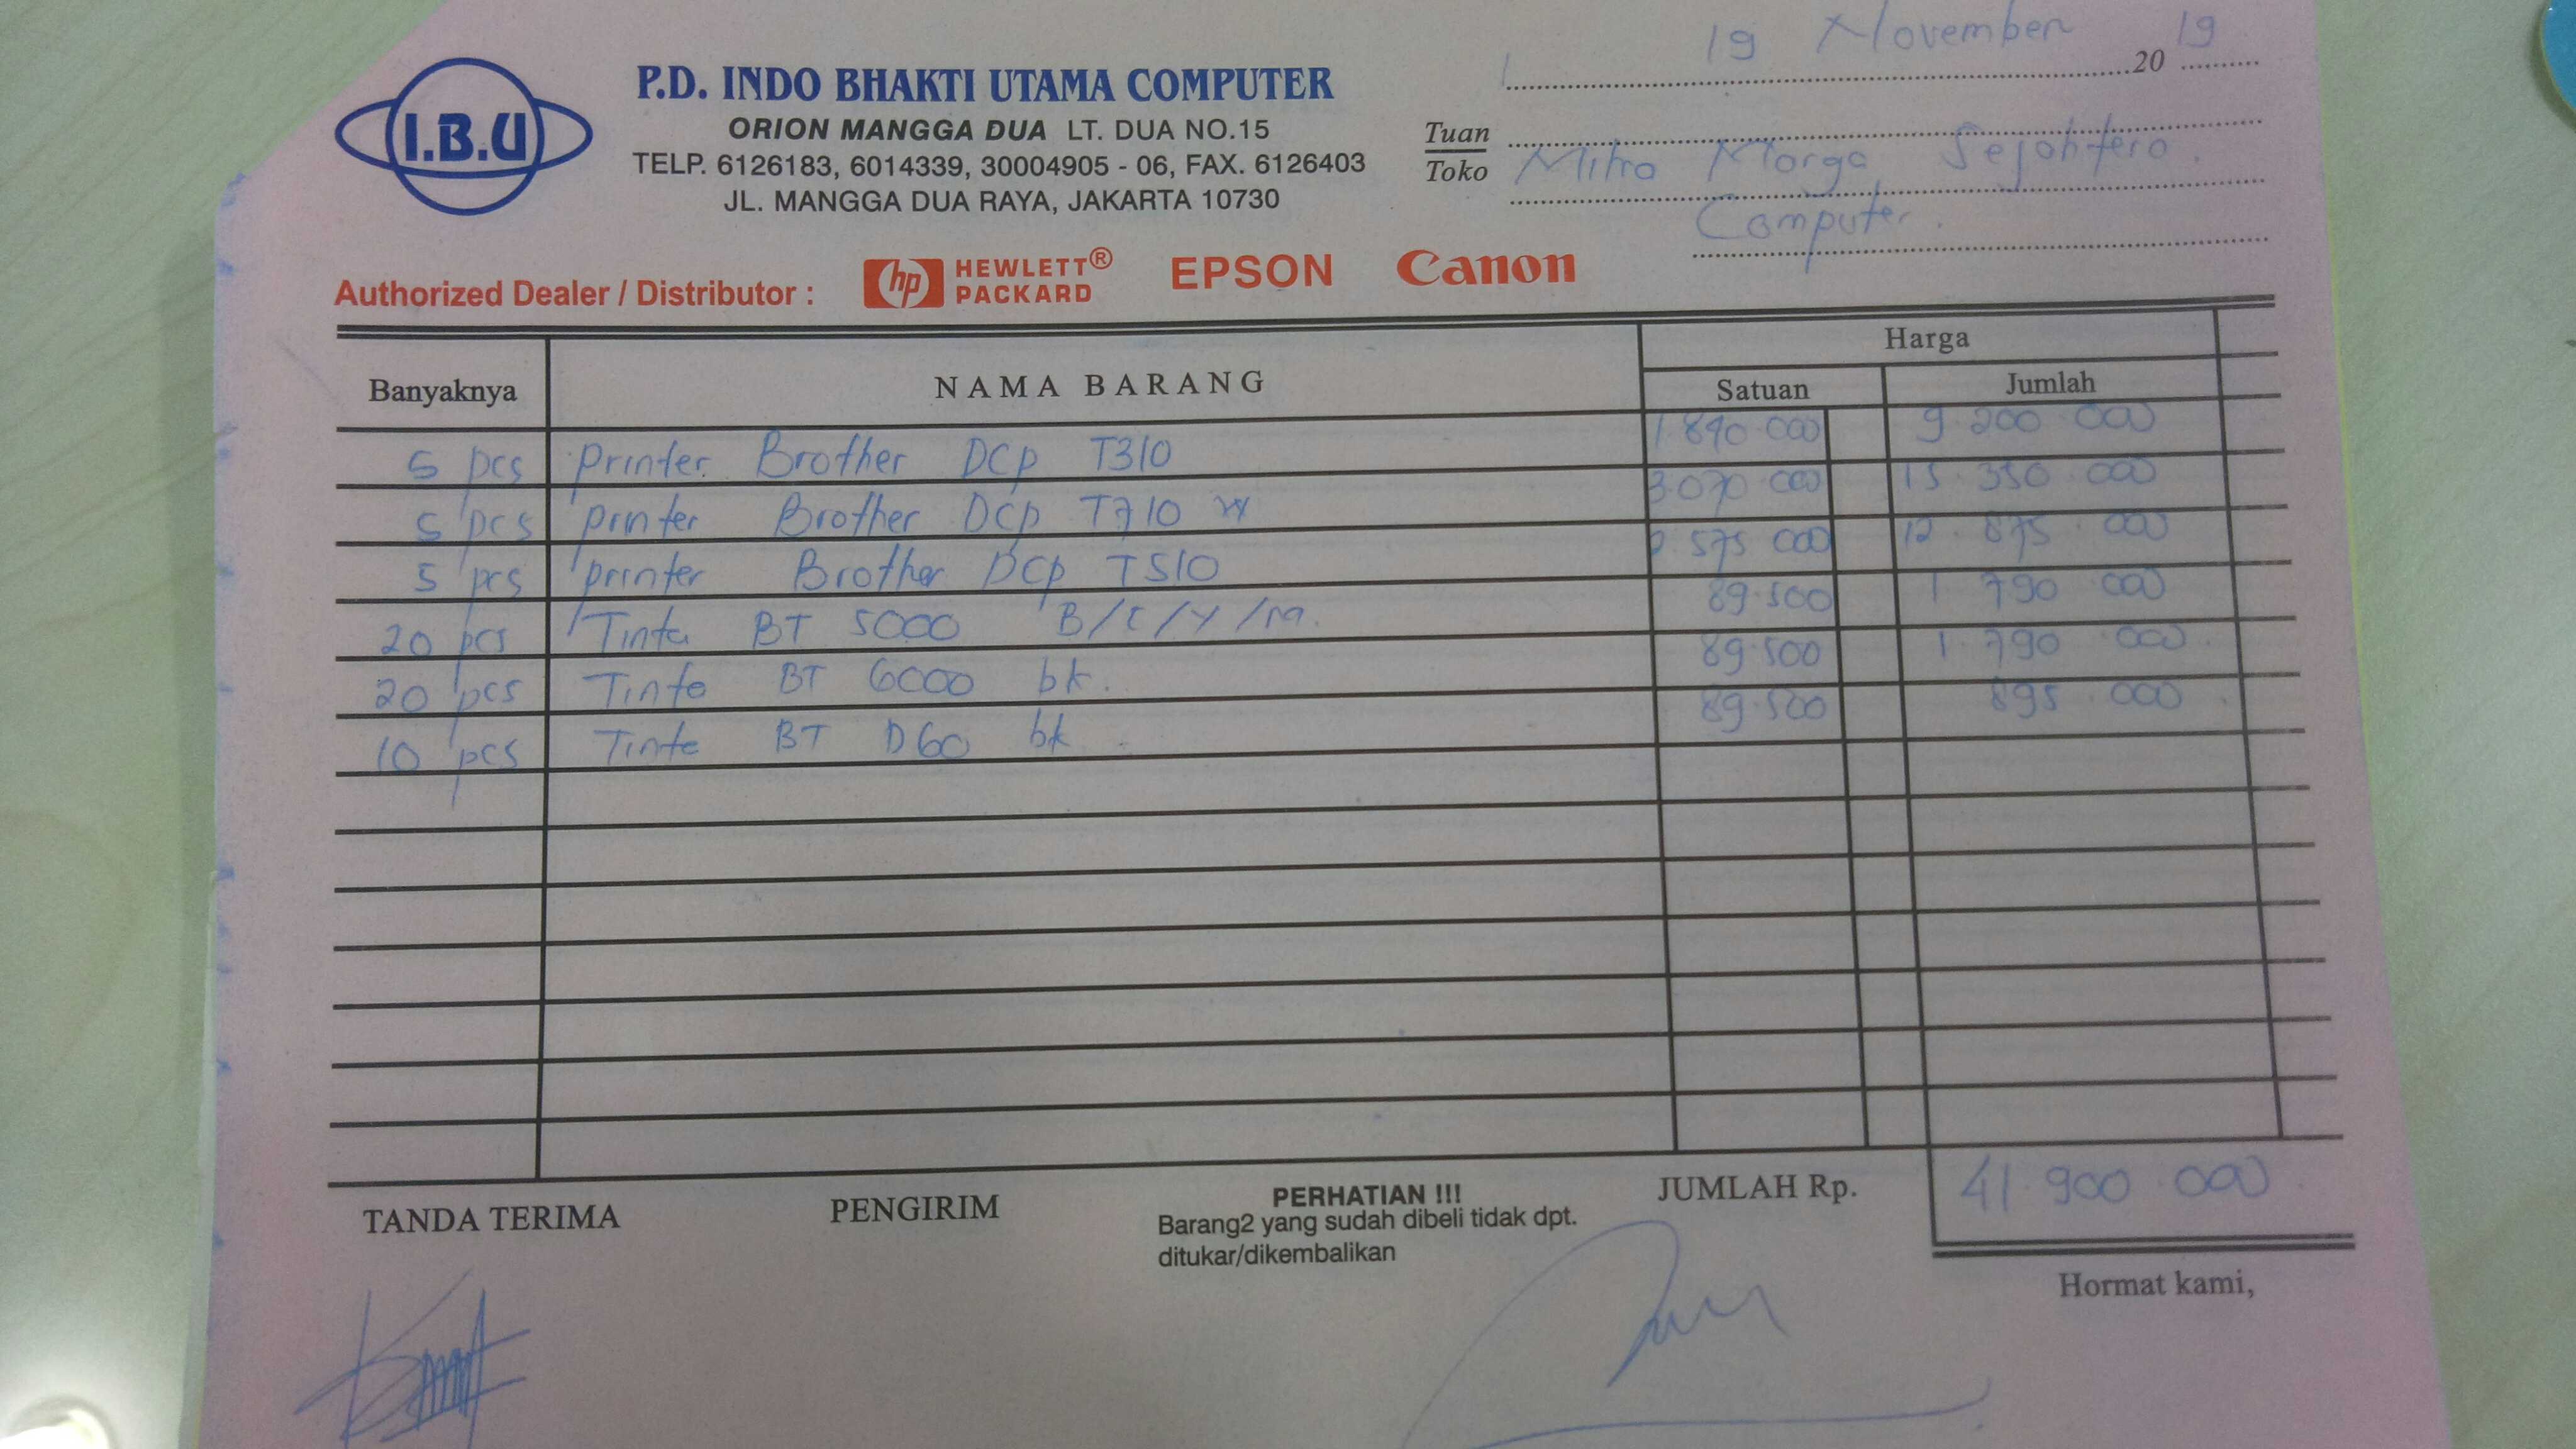 19 November 2019
I.B.U
P.D. INDO BHAKTI UTAMA COMPUTER
ORION MANGGA DUA LT. DUA NO.15
TELP. 6126183, 6014339, 30004905 - 06, FAX. 6126403
JL. MANGGA DUA RAYA, JAKARTA 10730
Tuan
Toko Mitra Marga Sejahtera
Computer.
Authorized Dealer / Distributor : hp HEWLETT® PACKARD EPSON Canon
Banyaknya NAMA BARANG Harga
Satuan Jumlah
5 pcs Printer Brother DCP T310 1.840.000 9.200.000
5 pcs printer Brother DCP T710 W 3.070.000 15.350.000
5 pcs printer Brother DCP T510 2.575.000 12.875.000
20 pcs Tinta BT 5000 B/C/Y/M. 89.500 1.790.000
20 pcs Tinta BT 6000 bk. 89.500 1.790.000
10 pcs Tinta BT D60 bk 89.500 895.000
TANDA TERIMA PENGIRIM PERHATIAN !!! JUMLAH Rp. 41.900.000
Barang2 yang sudah dibeli tidak dpt.
ditukar/dikembalikan
Hormat kami,